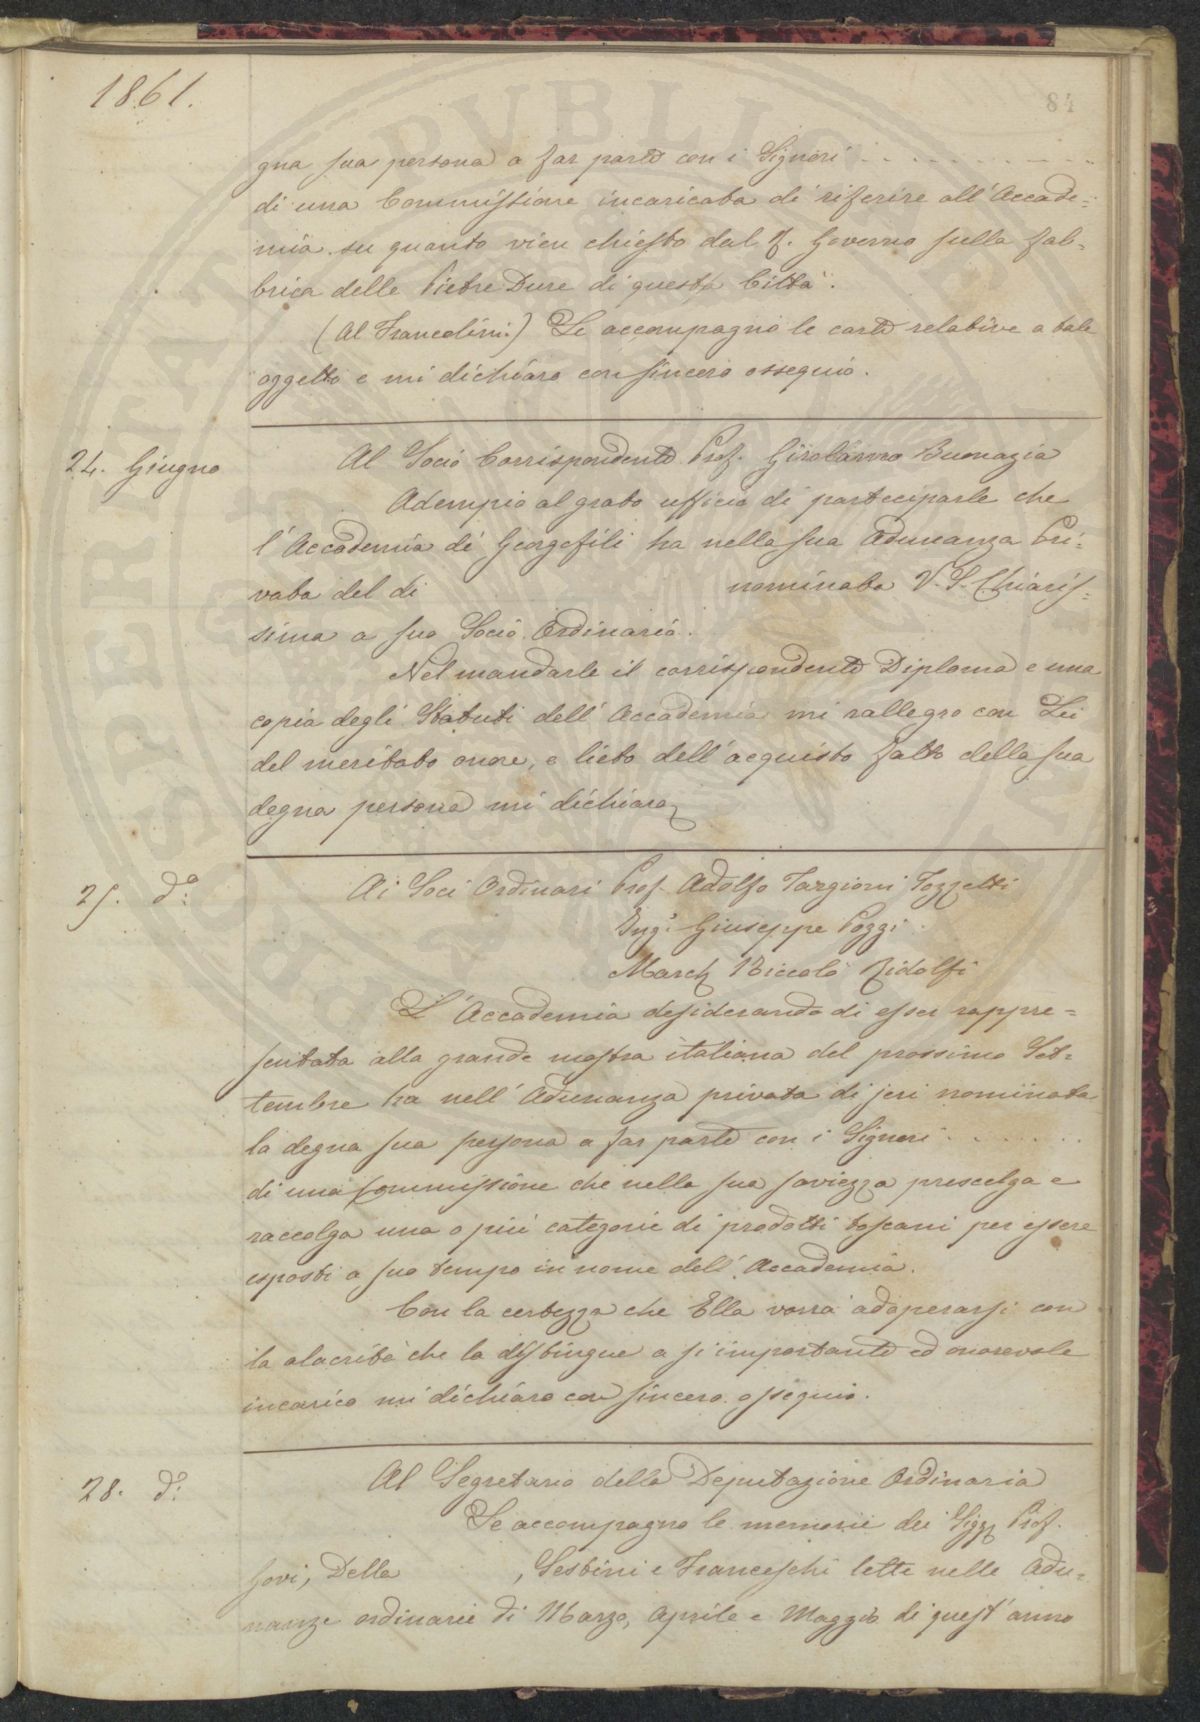 1861.
84
gna sua persona a far parte con i Signori . . . . . . . . .
di una Commissione incaricata di riferire all'Accade=
mia su quanto vien chiesto dal R. Governo sulla Fab=
brica delle Pietre Dure di questa Città.
(Al Francolini) Le accompagno le carte relative a tale
oggetto e mi dichiaro con sincero ossequio.
24. Giugno
Al Socio Corrispondente Prof. Girolamo Buonazia
Adempio al grato ufficio di parteciparle che
l'Accademia di Georgofili ha nella sua Adunanza Pri=
vata del di nominata V. S. Chiaris=
sima a suo Socio Ordinario.
Nel mandarle il corrispondente Diploma e una
copia degli Statuti dell'Accademia mi rallegro con Lei
del meritato onore, e lieto dell'acquisto fatto della sua
degna persona mi dichiaro
25. do:
Ai Soci Ordinari Prof. Adolfo Targioni Tozzetti
Ing. Giuseppe Poggi
March. Niccolò Ridolfi
L'Accademia desiderando di esser rappre=
sentata alla grande mostra italiana del prossimo Set=
tembre ha nell'Adunanza privata di jeri nominata
la degna sua persona a far parte con i Signori . . . . . . .
di una Commissione che nella sua saviezza prescelga e
raccolga una o più categorie di prodotti toscani per essere
esposti a suo tempo in nome dell'Accademia.
Con la certezza che Ella vorrà adoperarsi con
la alacrità che la distingue a si importante ed onorevole
incarico mi dichiaro con sincero ossequio.
28. do:
Al Segretario della Deputazione Ordinaria
Le accompagno le memorie dei Sigg. Prof.
Govi, Della , Sestini e Franceschi lette nelle Adu=
nanze ordinarie di Marzo, Aprile e Maggio di quest'anno